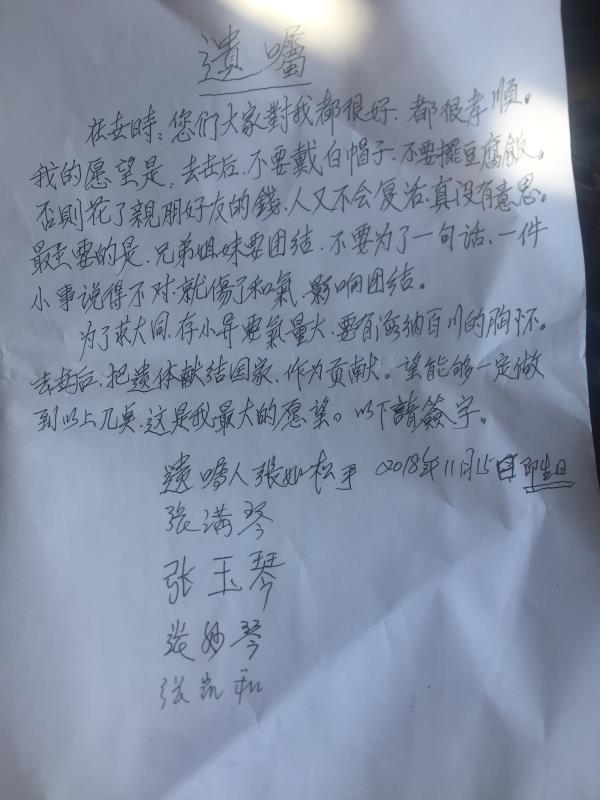 遺囑
在世時、您们大家對我都很好、都很孝順。
我的愿望是、去世后、不要戴白帽子、不要擺豆腐飯。
否則花了親朋好友的錢、人又不会复活、真没有意思。
最主要的是、兄弟姐妹要团结、不要为了一句话、一件
小事说得不对、就傷了和氣、影响团结。
为了求大同、存小异、要氣量大、要有海纳百川的胸怀。
去世后、把遗体献给国家、作为贡献。望能够一定做
到以上几奌、这是我最大的愿望。以下請簽字。
遗嘱人張 松 2018年11月15日即生日
张满琴
张玉琴
张妙琴
张凯和